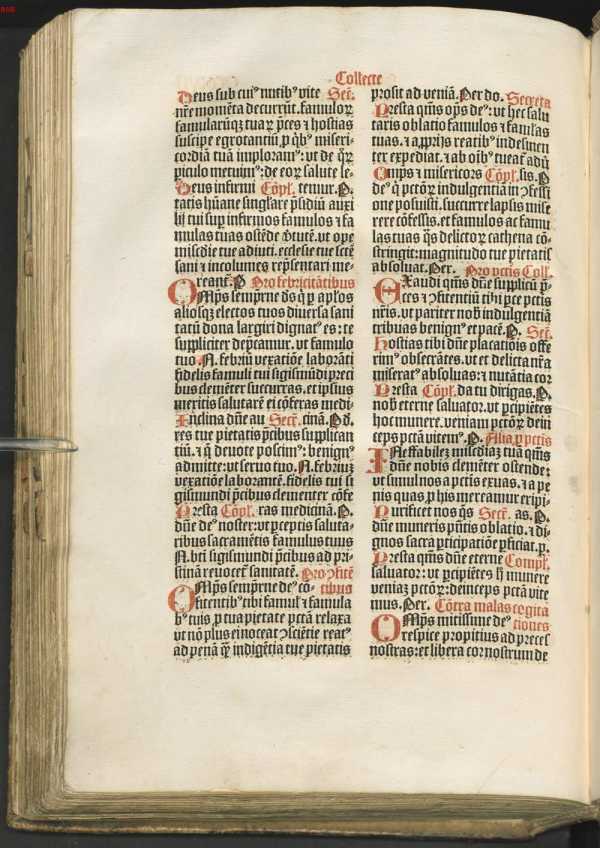 Collecte
Deus sub cuiꝰ nutibꝰ vite Secꝰ.
nr̄e momēta decurrūt. famuloꝝ
famularūqꝫ tuaꝝ p̄ces ⁊ hostias
suscipe egrotantiū ꝓ qͥbꝰ miseri⸗
cordiā tuā imploramꝰ: vt de qͦꝝ
piculo metuimꝰ: de eoꝝ salute le⸗
Deus infirmi Cōpl. temur. P.
tatis hūane singlare p̄sidiū auxi
lij tui sup infirmos famulos ⁊ fa
mulas tuas ostēde ꝟtutē. vt ope
misc̄die tue adiuti. ecclesie tue sctē
sani ⁊ incolumes rep̄sentari me⸗
reant̄. P Pro febricitātibus
OMp̄s sempr̄ne ds̄ q̇ ꝑ apl̄os
aliosqꝫ electos tuos diuersa sani
tatū dona largiri dignatꝰ es: te
suppliciter dep̄camur. vt famulo
tuo .N. febriū vexatiōe laborāti
fidelis famuli tui sigismūdi preci
bus clemēter succurras. et ipsius
meritis salutarē ei cōferas medi⸗
Inclina dn̄e au Secꝰ. cinā. P d.
res tue pietatis p̄cibus supplican
tiū. ⁊ q̇ deuote poscimꝰ: benignꝰ
admitte: vt seruo tuo .N. febriuꝫ
vexatiōe laborantē. fidelis tui si
gismundi p̄cibus clementer cōfe
Presta Cōpl. ras medicinā. P.
dn̄e deꝰ noster: vt ꝑceptis saluta⸗
ribus sacramētis famulus tuus
N. bt̄i sigismundi p̄cibus ad pri⸗
stinā reuocet̄ sanitatē. Pro ꝯfitē
OMp̄s sempr̄ne deꝰ cō⸗ tibus
fitentibꝰ tibi famulꝭ ⁊ famula
bꝰ tuis ꝓ tua pietate pctā relaxa
vt nō plus ei noceat ꝯsciētie reatꝰ
ad penā qͣꝫ indigētia tue pietatis
prosit ad veniā. Per do. Secreta
Presta qm̄s op̄s deꝰ: vt hec salu
taris oblatio famulos ⁊ famulas
tuas. ⁊ a pprijs reatibꝰ indesinen
ter expediat. ⁊ ab oībꝰ tueat̄ adū
Omp̄s ⁊ misericors Cōpl. sis. P.
deꝰ q̇ pctōꝝ indulgentiā in ꝯfessi
one posuisti. succurre lapsis mise
rere cōfessis. et famulos ac famu
las tuas q̄s delictoꝝ cathena cō⸗
stringit: magnitudo tue pietatis
absoluat. Per. Pro pctis Coll.
EXaudi qm̄s dn̄e suppliciū p̄⸗
ces ⁊ ꝯfitentiū tibi pce pctis
nr̄is. vt pariter nob̄ indulgentiā
tribuas benignꝰ et pacē. P. Sec̄.
Hostias tibi dn̄e placatiōis offe
rimꝰ obsecrātes. vt et delicta nr̄a
miseratꝰ absoluas: ⁊ nutātia cor
Presta Cōpl. da tu dirigas. P.
nob̄ eterne saluator. vt ꝑcipiētes
hoc munere. veniam pctōꝝ dein
ceps pctā vitemꝰ. P. Alia ꝓ pctis
INeffabileꝫ misc̄diaꝫ tuā qm̄s
dn̄e nobis clemēter ostende:
vt simul nos a pctis exuas. ⁊ a pe
nis quas ꝓ his meremur eripi⸗
Purificet nos q̄s Sec̄. as. P.
dn̄e muneris p̄ntis oblatio. ⁊ di⸗
gnos sacra ꝑticipatiōe ꝑficiat. p.
Presta qm̄s dn̄e eterne Compl.
saluator: vt ꝑcipiētes h̄ munere
veniaꝫ pctōꝝ: deinceps pctā vite
mus. Per. Cōtra malas cogita
OMp̄s mitissime deꝰ tiones
respice propitius ad preces
nostras: et libera cor nostrum de